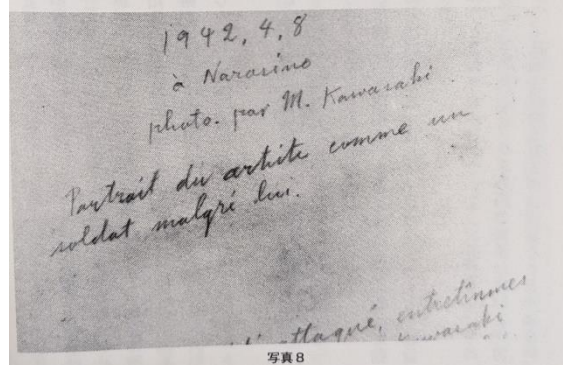 1942, 4, 8
à Narasino
photo. par M. Kawasaki
Portrait du artiste comme un
soldat malgré lui.
attaqué, entretînmes
Kawasaki
写真8